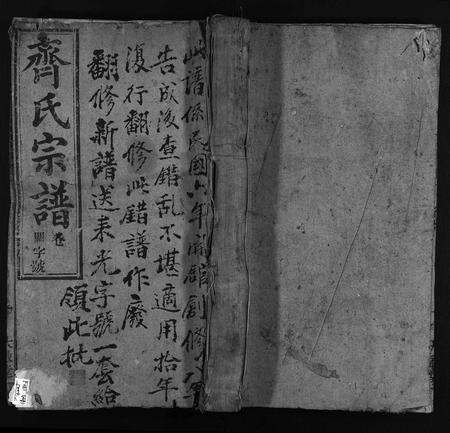 此譜係民國六年開館創修八年
告成後查錯乱不堪適用拾年
復行翻修此錯譜作廢
翻修新譜送来光字號一套給
領此批
齊氏宗譜
卷
字號